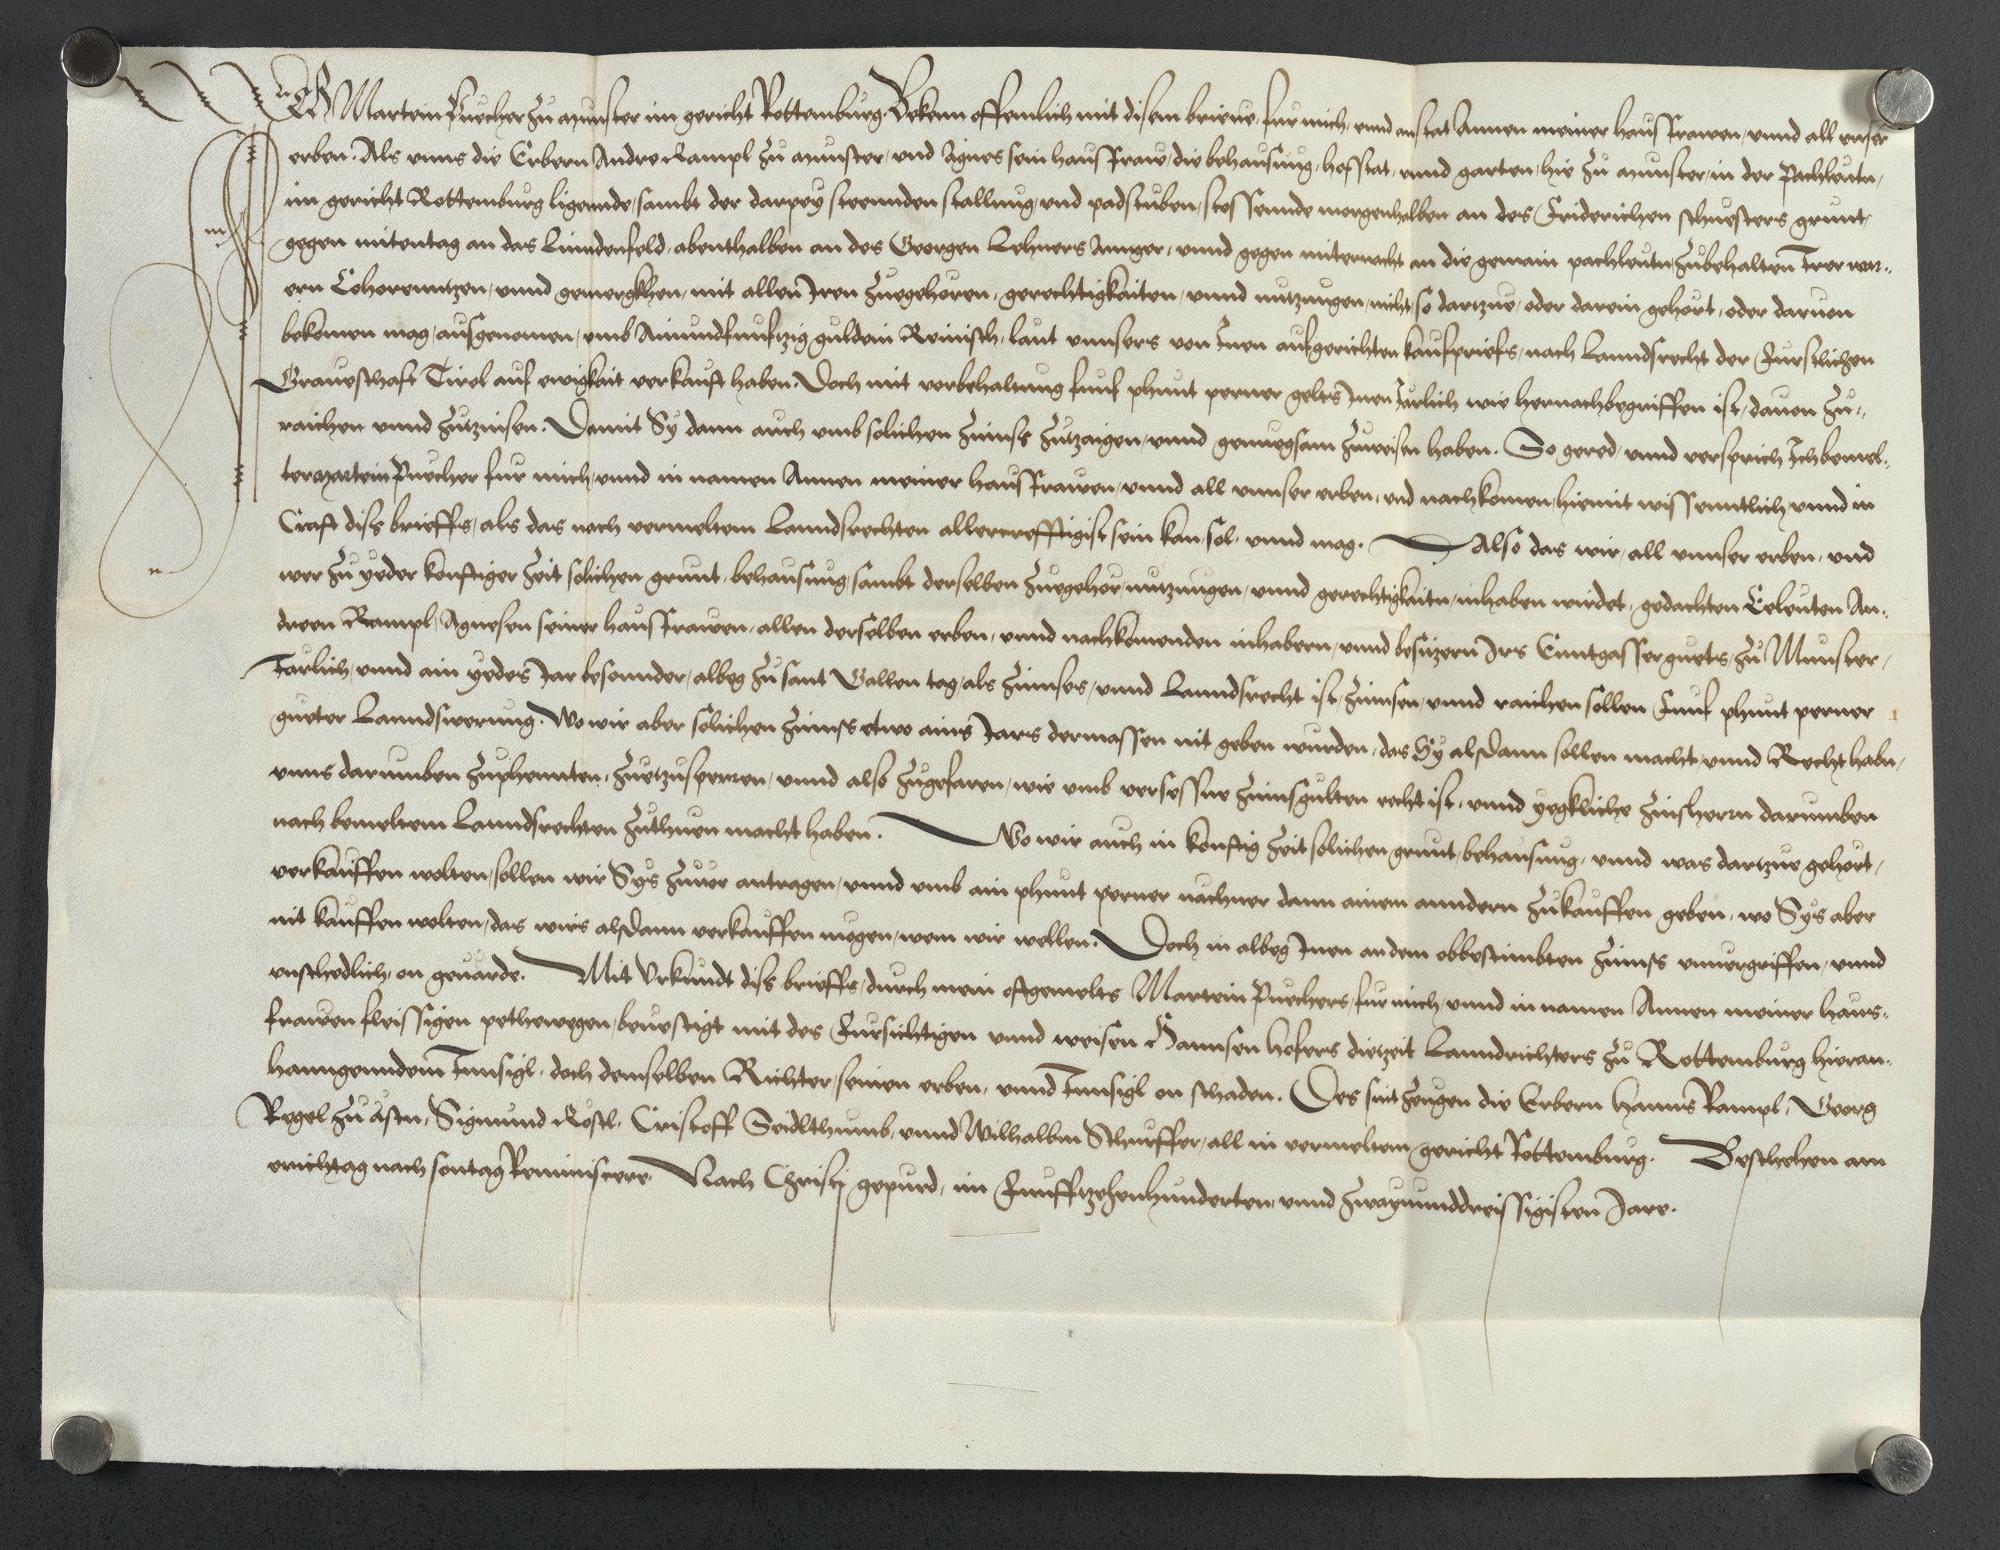 Ich Martein Puecher zu Munster im gericht Rottemburg. Bekenn offennlich mit disem brieve, fur mich, vnnd anstat Annen meiner hausfrawen, vnnd all vnser
erben. Als vnns die Erbern Andre Rampl zu Munster, vnd Agnes sein hausfraw, die behausung, hofstat, vnnd garten, hie zu Munster, in der Pachleutn,
im gericht Rottemburg ligennde, sambt der darpey steennden stallung, vnd padstuben, stossennde morgenhalben an des Friderichen schuesters grunt,
gegen mitentag an das Linndenfeld, abenthalben an des Georgen Lehners Annger, vnnd gegen miternacht an die gemain pachleutn, zubehalten Irer war-
ern Cohorenntzen, vnnd gemergkhen, mit allen Iren zuegehoren, gerechtigkaiten, vnnd nutzungen, nicht, so dartzue, oder darein gehort, oder daruon
bekomen mag, ausgenomen, vmb Ainundfunftzig guldein Reinisch, laut vnnsers von Inen aufgerichten kaufpriefs, nach Lanndsrecht der Furstlichen
Graueschaft Tirol auf ewigkait verkauft haben. Doch mit vorbehaltung funf phunt perner gelts Inen Jarlich wie hernachbegriffen ist, dauon zu-
raichen vnnd zutzinsen. Damit Sy dann auch vmb solichen Zinnss zutzaigen, vnnd genuegsam zuweisen haben. So gered, vnnd versprich Ich bemel-
ter Martein Puecher fur mich, vnnd in namen Annen meiner hausfrawen, vnnd all vnnser erben, vnd nachkomen, hiemit wissenntlich, vnnd in
Craft diss brieffs, als das nach vermeltem Lanndsrechten allercrefftigist sein kan, sol, vnnd mag. Also das wir, all vnnser erben, vnd
wer zu yeder konftiger Zeit solichen grunt, behausung, sambt derselben zuegehor, nutzungen, vnnd gerechtigkaitn, inhaben wirdet, gedachten Eeleuten An-
dreen Rampl, Agnesen seiner hausfrawen, allen derselben erben, vnnd nachkomenden inhabern, vnnd besitzern Irs Enntgasser guets, zu Munster,
Jarlich, vnnd ain yedes Jar besonnder, albeg zu sant Gallen tag, als Zinnses, vnnd Lanndsrecht ist, Zinnsen, vnnd raichen sollen Funf phunt perner
gueter Lanndswerung. Wo wir aber solichen Zinnss etwo ains Jars dermassen nit geben wurden, das Sy alsdann sollen macht, vnnd Recht habn,
vnns darumben zuphennten, zuetzusperren, vnnd also zugefaren, wie vmb versessne Zinnsgulten recht ist, vnnd yegkliche Zinsherrn darumben
nach bemeltem Lanndsrechten zuthuen macht haben. Wo wir auch in konftig Zeit solichen grunt, behausung, vnnd was dartzue gehort,
verkauffen wolten, sollen wir Sys zuuor antragen, vnnd vmb ain phunt perner nachner dann ainem anndern zukauffen geben, wo Sys aber
nit kauffen wolten, das wirs alsdann verkauffen mogen, wem wir wellen. Doch in albeg Inen an dem obbestimbten Zinnss vnuergriffen, vnnd
vnschedlich, on geuarde. Mit Vrkundt diss brieffs, durch mein oftgemelts Martein Puechers, fur mich, vnnd in namen Annen meiner haus-
frawen fleissigen pethewegen, beuestigt mit des Fursichtigen vnnd weisen Hannsen Hofers dietzeit Lanndrichters zu Rottemburg hieran-
hanngenndem Innsigl, doch demselben Richter, seinen erben, vnnd Innsigl on schaden. Des sint Zeugen die Erbern Hanns Rampl, Georg
Regel zu Astn, Sigmund Rostl, Cristoff Seidlthumb, vnnd Wilhalbm Schurffer, all in vermeltem gericht Rottemburg. Beschehen am
erichtag nach sontag Reminiscere. Nach Christi gepurd, im Funfftzehenhunderten vnnd Zwayunnddreissigisten Jare.